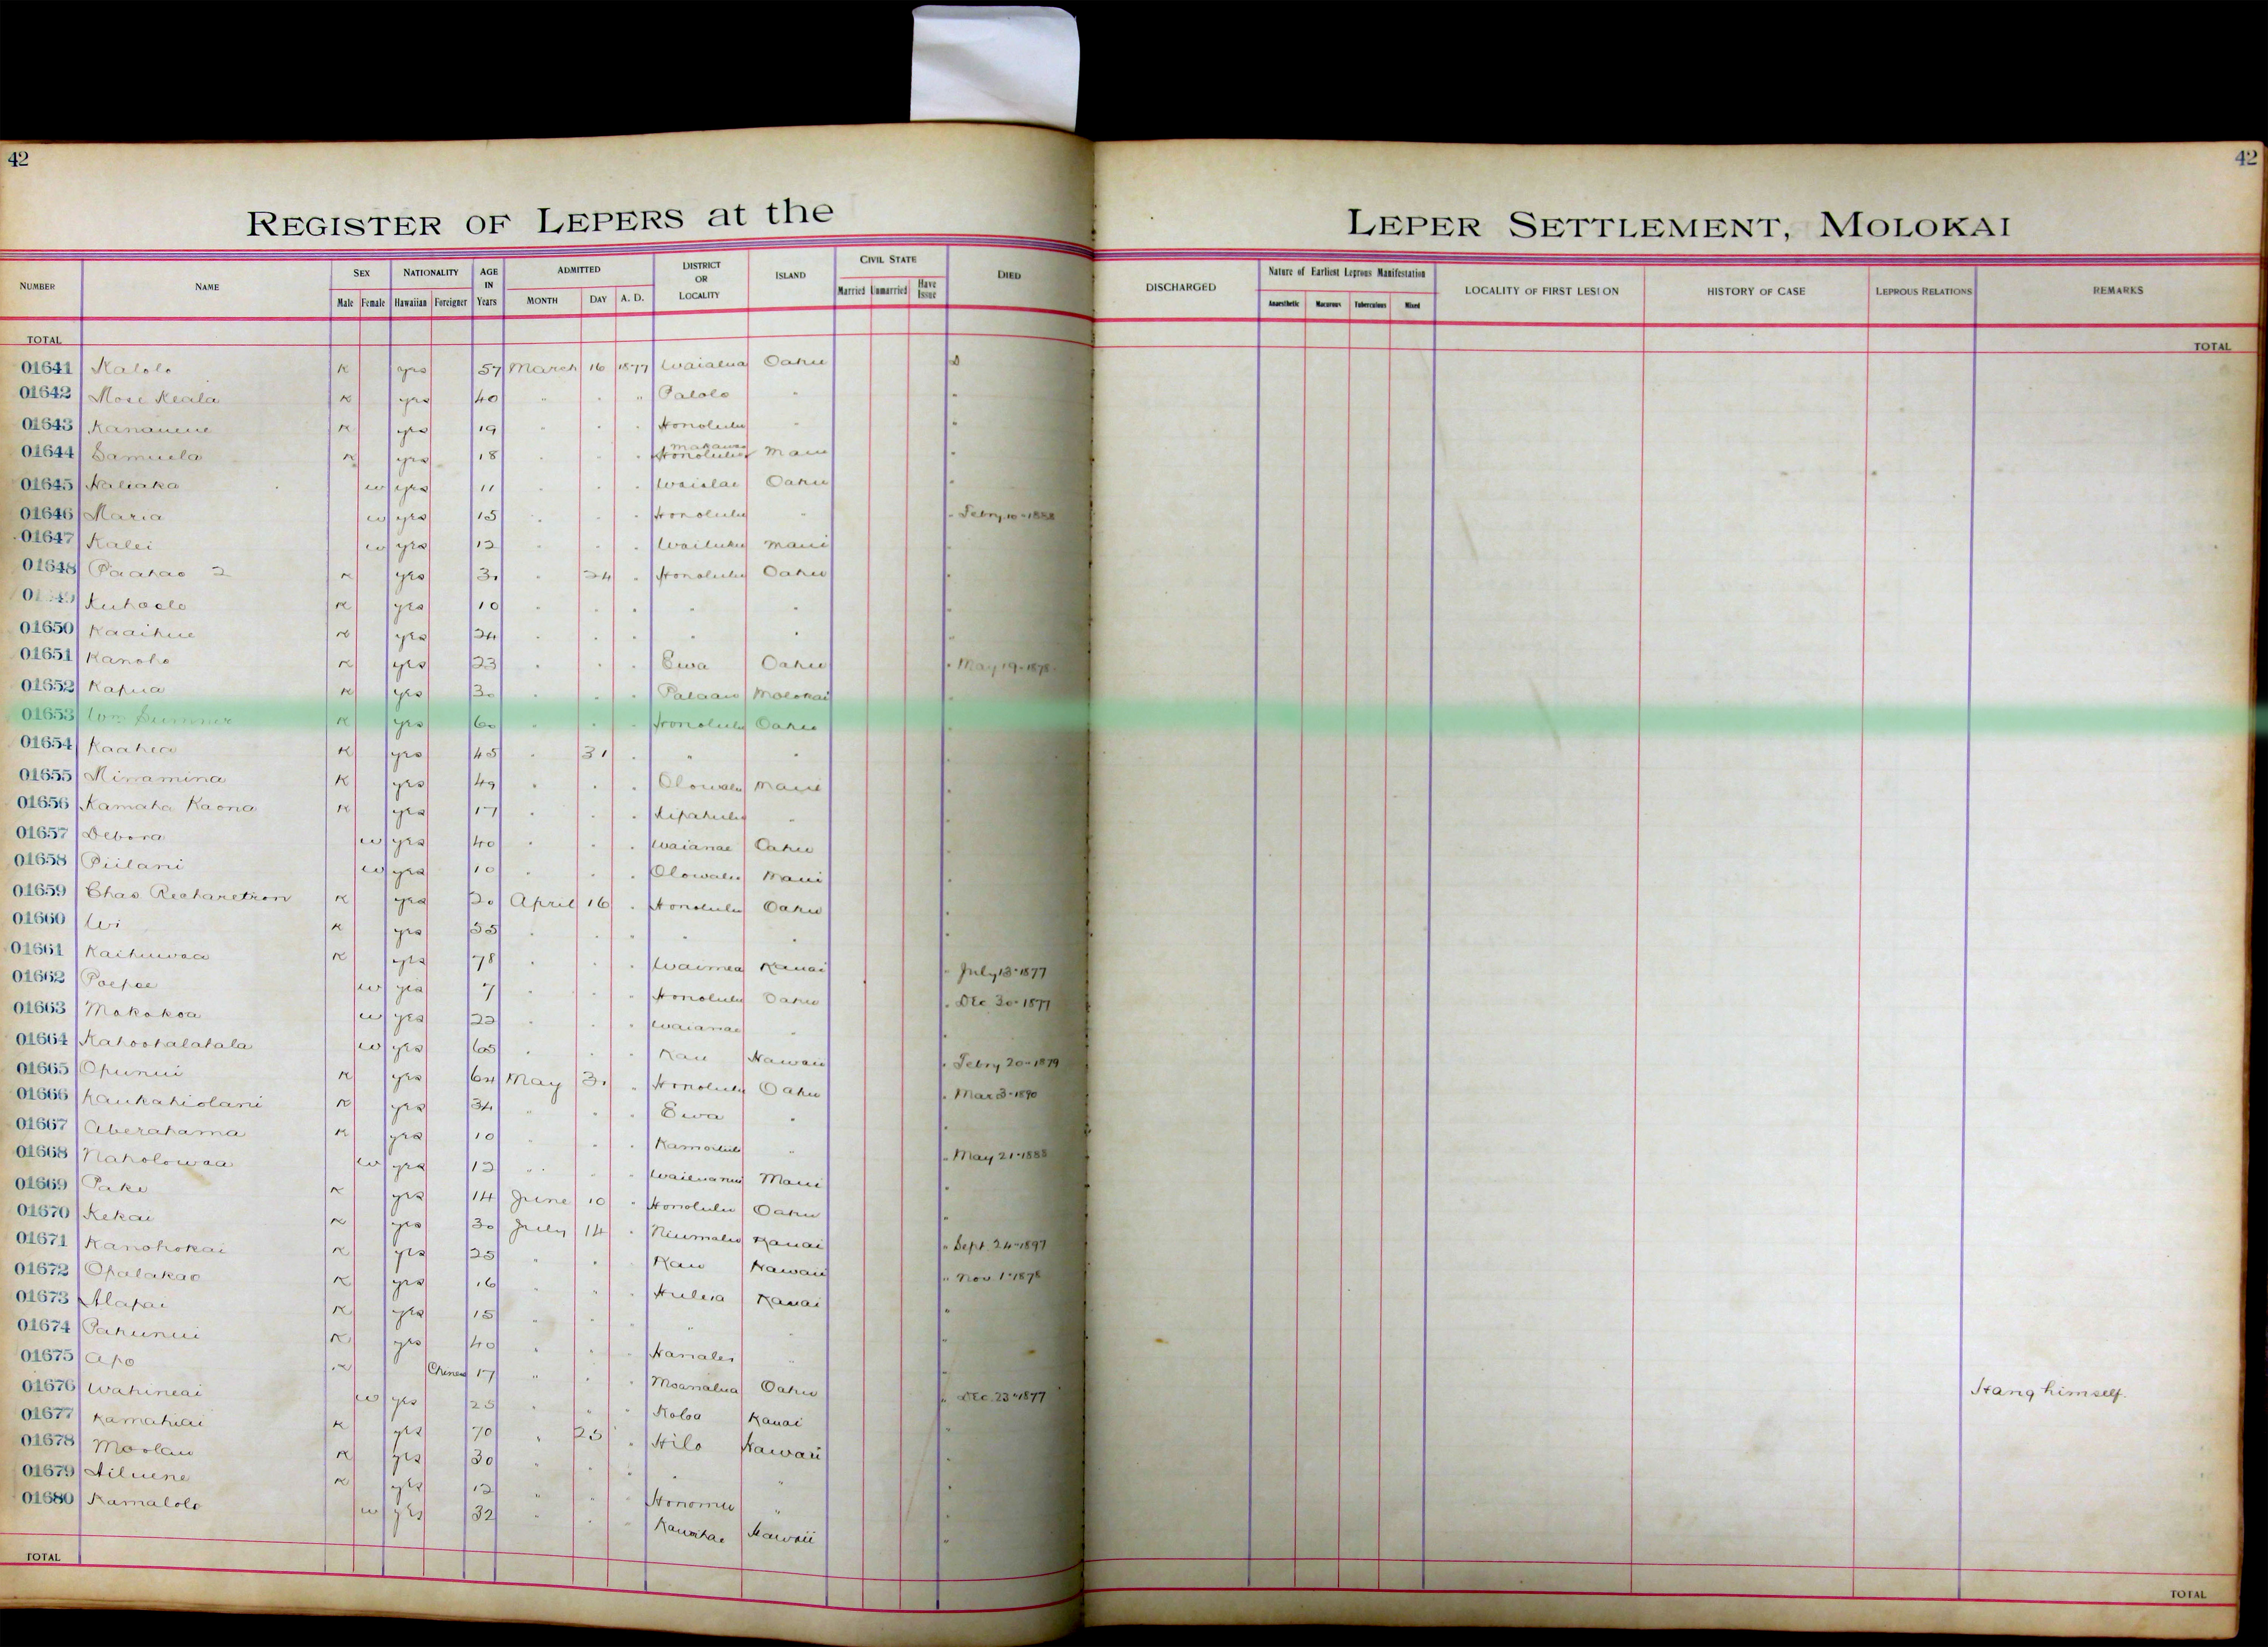 42
42
REGISTER OF LEPERS at the LEPER SETTLEMENT, MOLOKAI
NUMBER NAME SEX NATIONALITY AGE IN Years ADMITTED DISTRICT OR LOCALITY ISLAND CIVIL STATE DIED DISCHARGED Nature of Earliest Leprous Manifestation LOCALITY OF FIRST LESION HISTORY OF CASE LEPROUS RELATIONS REMARKS
Male Female Hawaiian Foreigner MONTH DAY A. D. Married Unmarried Have Issue Anaesthetic Macurous Tuberculous Mixed
TOTAL TOTAL
01641 Kalolo K yes 57 March 16 1877 Waialua Oahu D
01642 Mose Keala K yes 40 " " " Palolo " "
01643 Kananene K yes 19 " " " Honolulu " "
01644 Samuela K yes 18 " " " Honolulu Makawao Maui "
01645 Naliaka w yes 11 " " " Waialae Oahu "
01646 Maria w yes 15 " " " Honolulu " " Febry 10-1888
01647 Kalei w yes 12 " " " Wailuku Maui "
01648 Paahao 2 K yes 30 " 24 " Honolulu Oahu "
Kuhaelo K yes 10 " " " " " "
01650 Kaaihue K yes 24 " " " " " "
01651 Kanoho K yes 23 " " " Ewa Oahu " May 19-1878
01652 Kapua K yes 30 " " " Palaau Molokai "
01653 Wm Sumner K yes 60 " " " Honolulu Oahu "
01654 Kaahea K yes 45 " 31 " " " "
01655 Minamina K yes 49 " " " Olowalu Maui "
01656 Kamaha Kaona K yes 17 " " " Kipahulu " "
01657 Debora w yes 40 " " " Waianae Oahu "
01658 Piilani w yes 10 " " " Olowalu Maui "
01659 Chas Richardson K yes 20 April 16 " Honolulu Oahu "
01660 Wi K yes 55 " " " " " "
01661 Kaihuwaa K yes 78 " " " Waimea Kauai " July 13-1877
01662 Poepoe w yes 7 " " " Honolulu Oahu " Dec 30-1877
01663 Makakoa w yes 22 " " " Waianae " "
01664 Kahoohalahala w yes 65 " " " Kau Hawaii " Febry 20-1879
01665 Opunui K yes 64 May 31 " Honolulu Oahu " Mar 3-1890
01666 Kaukahiolani K yes 34 " " " Ewa " "
01667 Aberahama K yes 10 " " " Kamoiliili " " May 21-1888
01668 Naholowaa w yes 12 " " " Wailuanui Maui "
01669 Pake K yes 14 June 10 " Honolulu Oahu "
01670 Kekai K yes 30 July 14 " Niumalu Kauai " Sept. 24-1897
01671 Kanohokai K yes 25 " " " Kau Hawaii " Nov. 1-1878
01672 Opalakao K yes 16 " " " Huleia Kauai "
01673 Alapai K yes 15 " " " " " "
01674 Pahunui K yes 40 " " " Hanalei " "
01675 Apo K Chinese 17 " " " Moanalua Oahu " Dec. 23-1877 Hang himself.
01676 Wahineai w yes 25 " " " Koloa Kauai "
01677 Kamahiai K yes 70 " 25 " Hilo Hawaii "
01678 Moolau K yes 30 " " " " " "
01679 Ailuene K yes 12 " " " Honomu " "
01680 Kamalolo w yes 32 " " " Kawaihae Hawaii "
TOTAL TOTAL